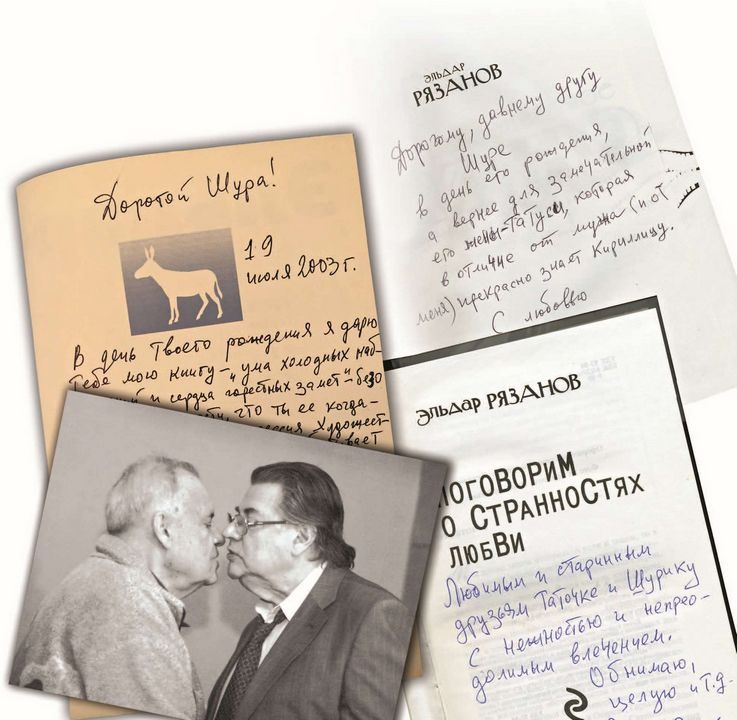 Дорогой Шура!
19
июля 2003 г.
В день Твоего рождения я дарю
Тебе мою книгу – „ума холодных наб-
и сердца горестных замет"
что ты ее когда-
Художест-
ЭЛЬДАР
РЯЗАНОВ
Дорогому, давнему другу
Шуре
в день его рождения,
а вернее для замечательной
его жены-Татуси, которая
в отличие от мужа (и от
меня) прекрасно знает Кириллицу.
С любовью
ЭЛЬДАР РЯЗАНОВ
ПОГОВОРИМ
О СТРАННОСТЯХ
ЛЮБВИ
Любимым и старинным
друзьям Таточке и Шурику
с нежностью и непрео-
долимым влечением.
Обнимаю,
целую и т.д.